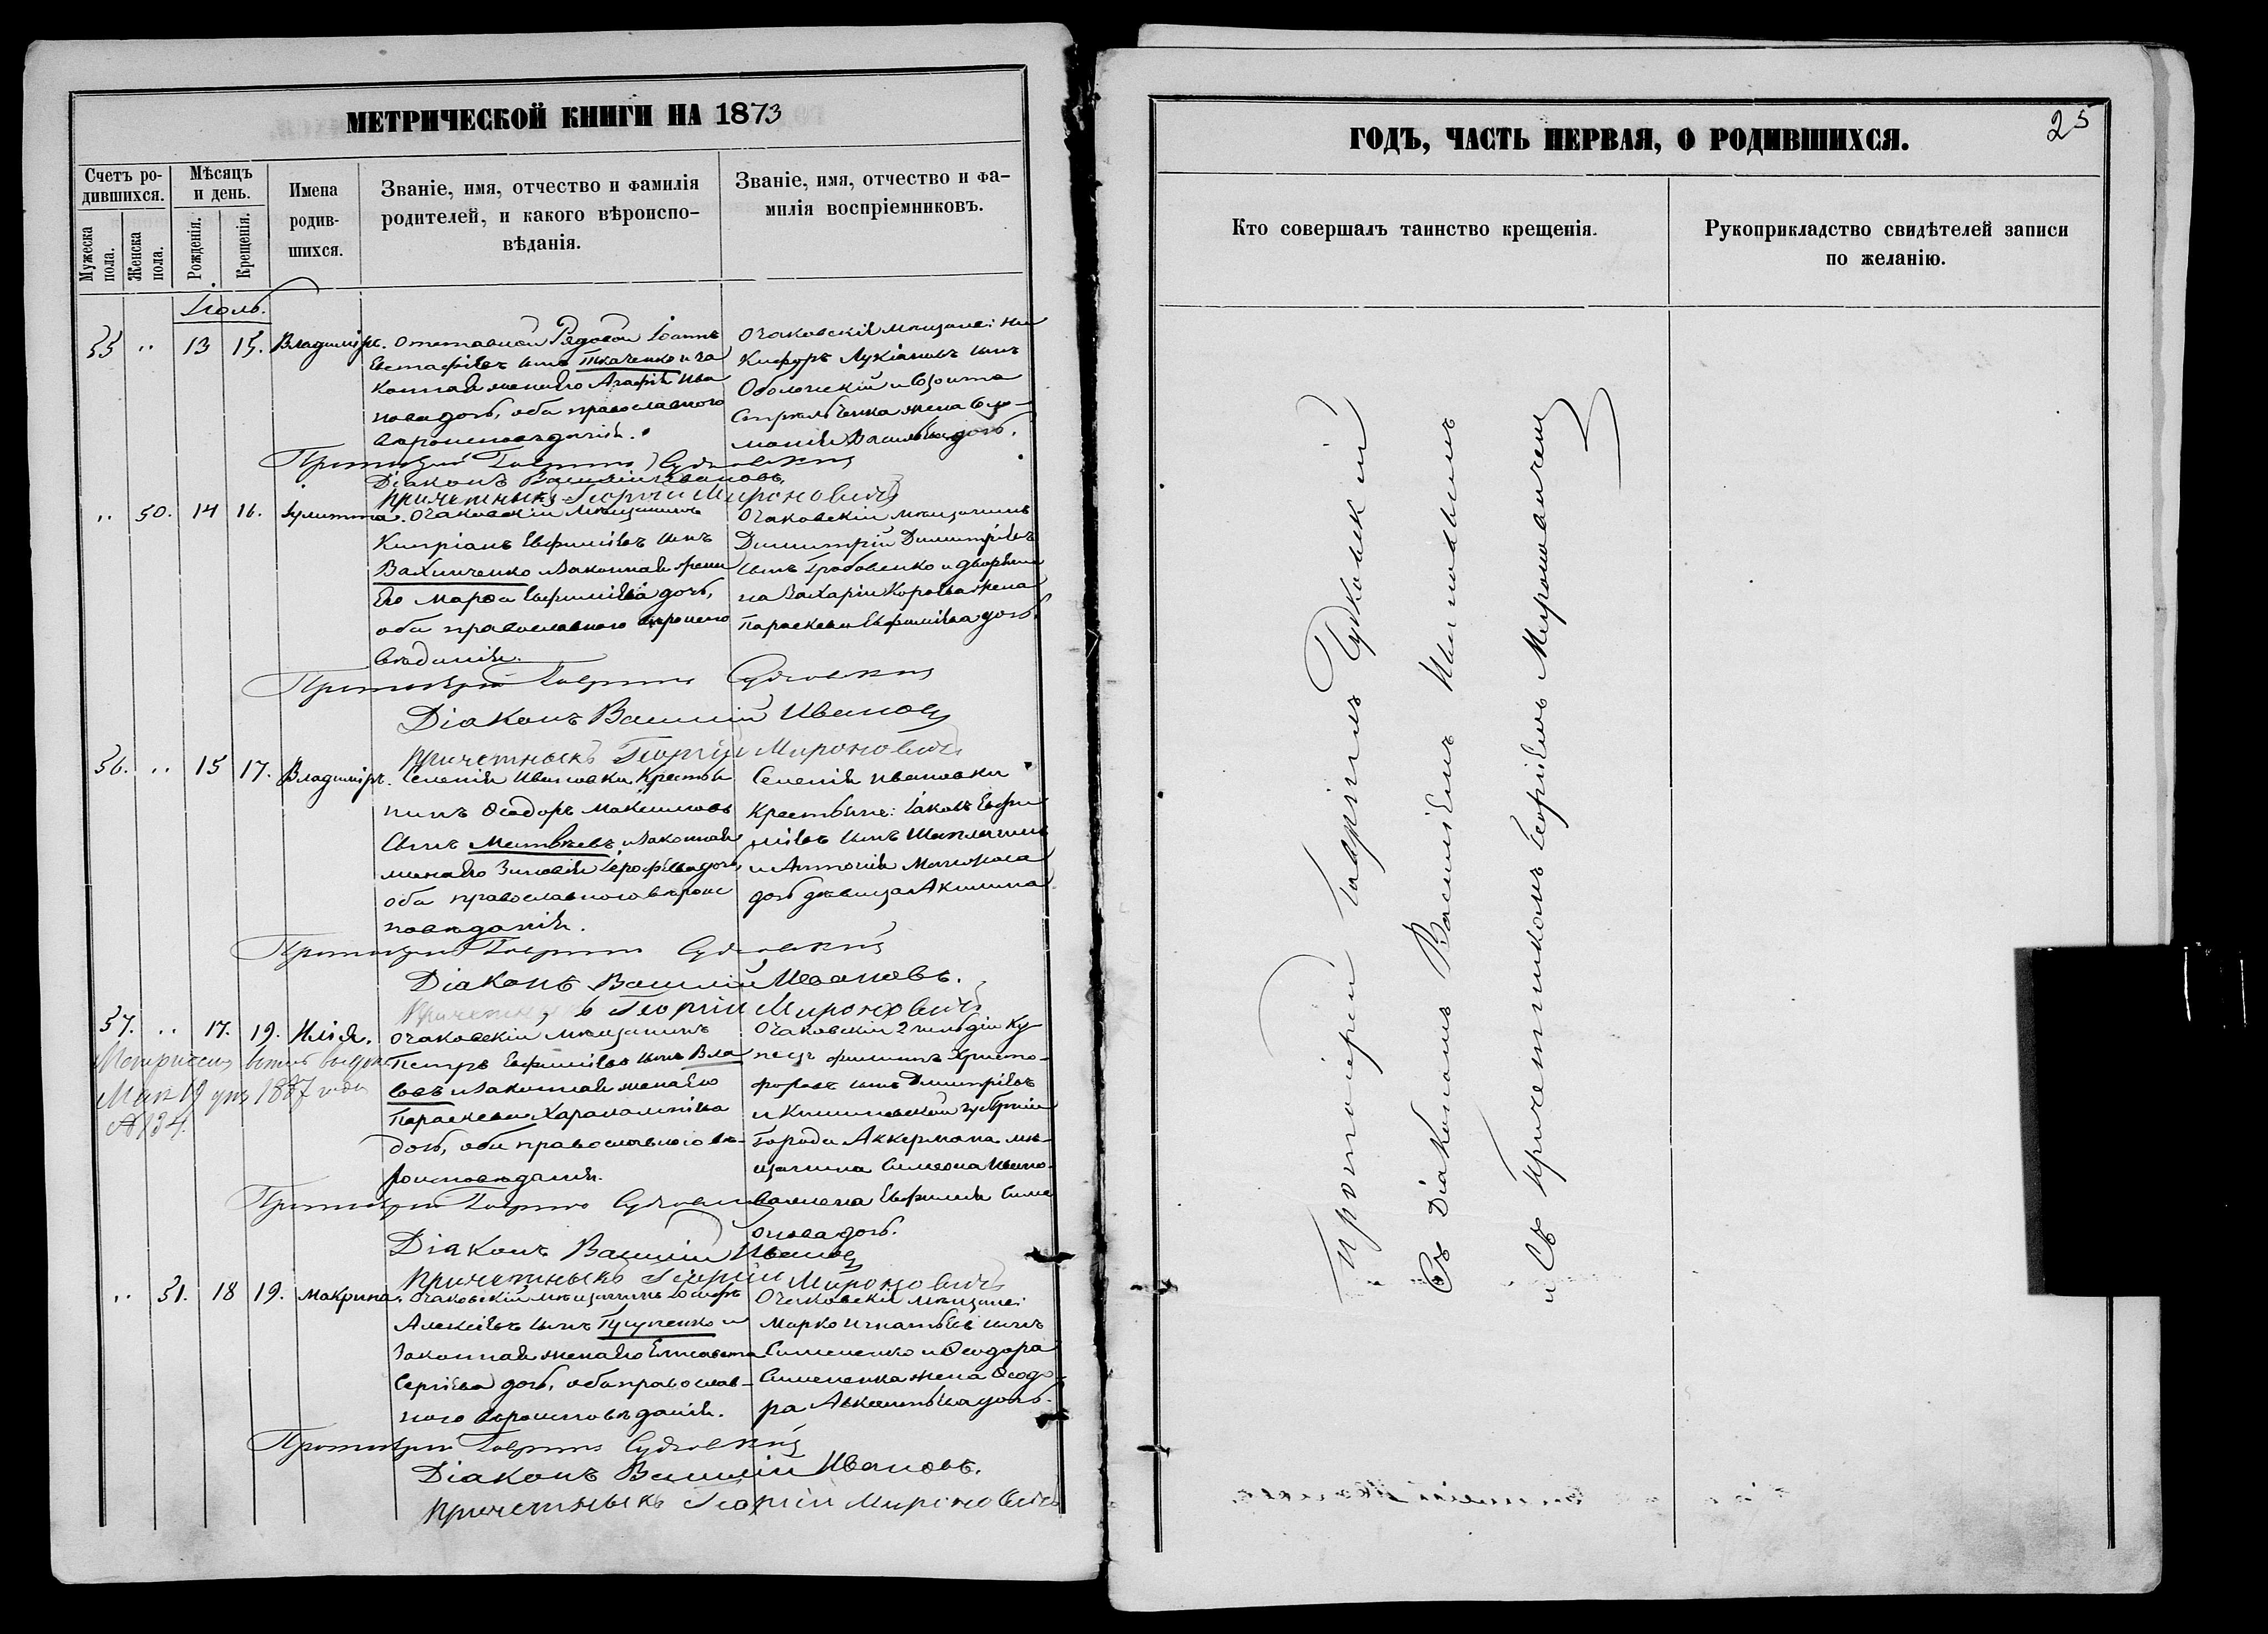 МЕТРИЧЕСКОЙ КНИГИ НА 1873
Счетъ ро-
дившихся.
Мѣсяцъ
и день.
Мужеска
пола.
Женска
пола.
Рожденія.
Крещенія.
Имена
родив-
шихся.
Званіе, имя, отчество и фамилія
родителей, и какого вѣроиспо-
вѣданія.
Званіе, имя, отчество и фа-
милія воспріемниковъ.
Іюль.
55 " 13 15. Владиміръ.
Отставной Рядовой Іоаннъ
Евстафіевъ сынъ Ткаченко и за
конная жена его Агафія Ива
нова дочь, оба православного
вѣроисповѣданія.
Очаковскія мѣщане: Ни
кифоръ Лукіановъ сынъ
жена
Васильева дочь.
Протоіерей Гавріилъ Судковскій
Діаконъ Василій Ивановъ.
Причетныкъ Георгій Мироновичъ
" 50. 14 16. Іулитта.
Очаковскій мѣщанинъ
Кипріанъ Евфиміевъ сынъ
Вахниченко и законная жена
Его Марѳа Евфиміева дочь,
оба православного вѣроиспо
вѣданія.
Очаковскій мѣщанинъ
Димитрій Димитріевъ
сынъ Гробовенко и дворяни
на Захарія жена
Параскева Евфиміева дочь.
Протоіерей Гавріилъ Судковскій
Діаконъ Василій Ивановъ
Причетныкъ Георгій Мироновичъ
56. " 15 17. Владиміръ.
Селенія Ивановки Крестья
нинъ Ѳеодоръ Максимовъ
сынъ Матвѣевъ и законная
жена его Зиновія Іерофѣева дочь,
оба православного вѣроис
повѣданія.
Селенія Ивановки
Крестьяне: Іаковъ Евфи
міевъ сынъ
и Антонія
дочь дѣвица Акилина
Протоіерей Гавріилъ Судковскій
Діаконъ Василій Ивановъ.
Причетныкъ Георгій Мироновичъ
57. " 17. 19. Илія.
Очаковскій мѣщанинъ
Петръ Евфиміевъ сынъ Вла
совъ и законная жена Его
Параскева Харалампіева
дочь, оба православного вѣ-
роисповѣданія.
Очаковскій 2 гильдіи Ку
пецъ Филиппъ Христо-
форовъ сынъ Димитріевъ
и Кишиневской губерніи
города Аккермана мѣ-
щанина Симеона Ивано-
ва жена Евфимія Симе
онова дочь.
Мая 19 дня 1887 года
№ 134.
Протоіерей Гавріилъ Судковскій
Діаконъ Василій Ивановъ
Причетныкъ Георгій Мироновичъ
" 51. 18 19. Макрина.
Очаковскій мѣщанинъ Іосифъ
Алексіевъ сынъ и
законная жена его Елисавета
Сергіева дочь, оба православ-
ного вѣроисповѣданія.
Очаковскія мѣщане:
Марко Игнатьевъ сынъ
Симененко и Ѳеодора
жена Ѳеодо-
ра дочь.
Протоіерей Гавріилъ Судковскій
Діаконъ Василій Ивановъ.
Причетныкъ Георгій Мироновичъ
ГОДЪ, ЧАСТЬ ПЕРВАЯ, О РОДИВШИХСЯ.
25
Кто совершалъ таинство крещенія.
Рукоприкладство свидѣтелей записи
по желанію.
Протоіерей Гавріилъ Судковскій
Съ Діакономъ Василіемъ Ивановымъ
и Съ Причетникомъ Георгіемъ Мироновичемъ